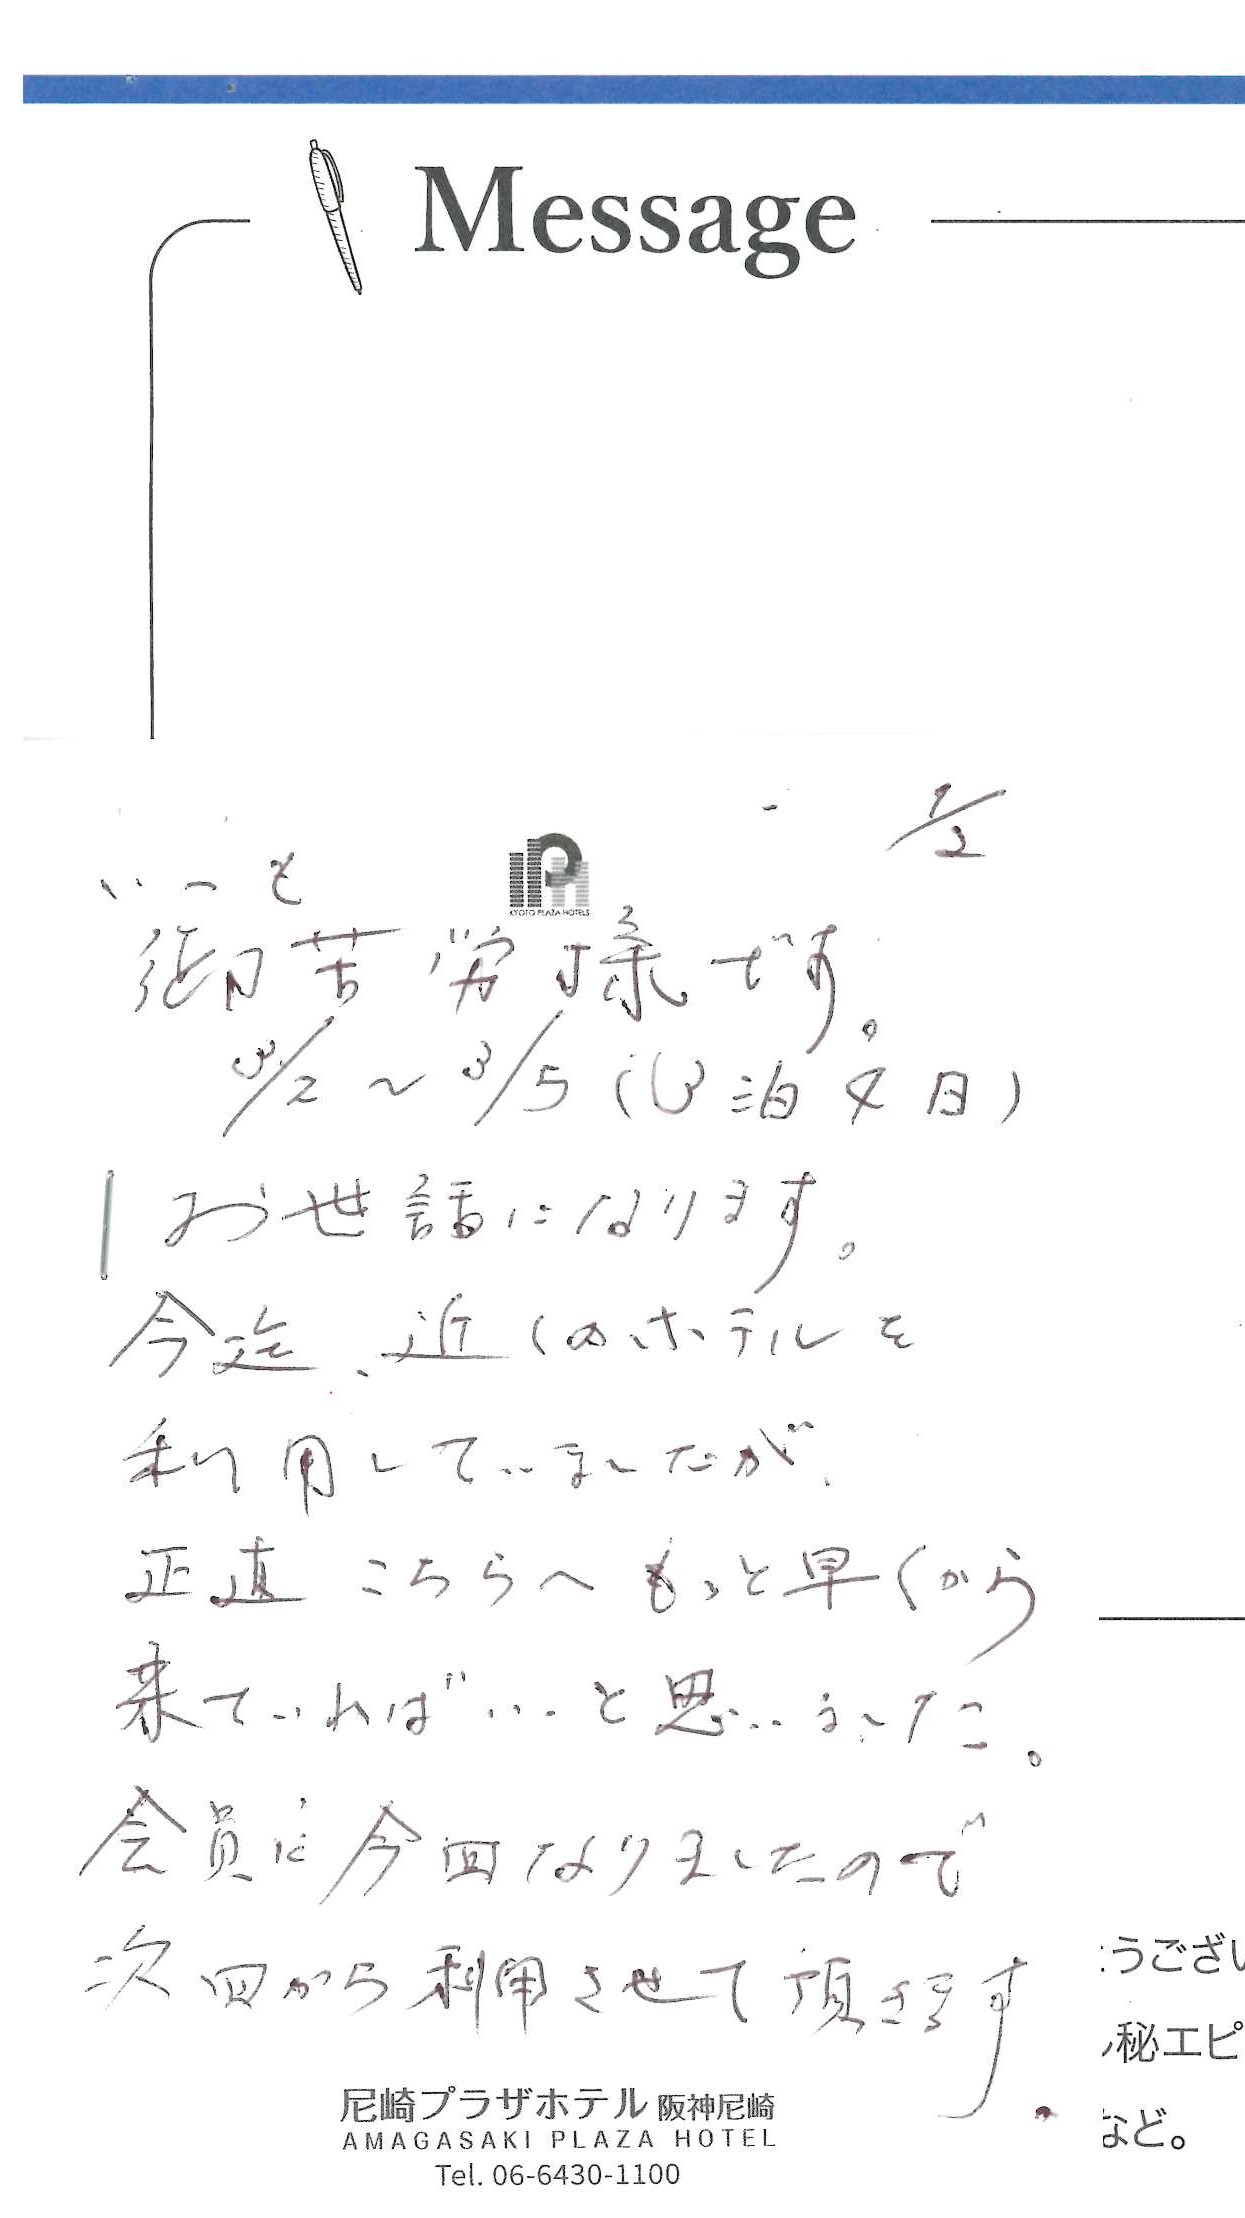 Message
1/2
いつも
KYOTO PLAZA HOTELS
御苦労様です。
3/2 ~ 3/5 (3泊4日)
お世話になります。
今迄、近くのホテルを
利用していましたが、
正直 こちらへ もっと早くから
来ていれば いいと思いました。
会員に今回なりましたので
次回から利用させて頂きます.
うござい
秘エピ
など。
尼崎プラザホテル 阪神尼崎
AMAGASAKI PLAZA HOTEL
Tel. 06-6430-1100